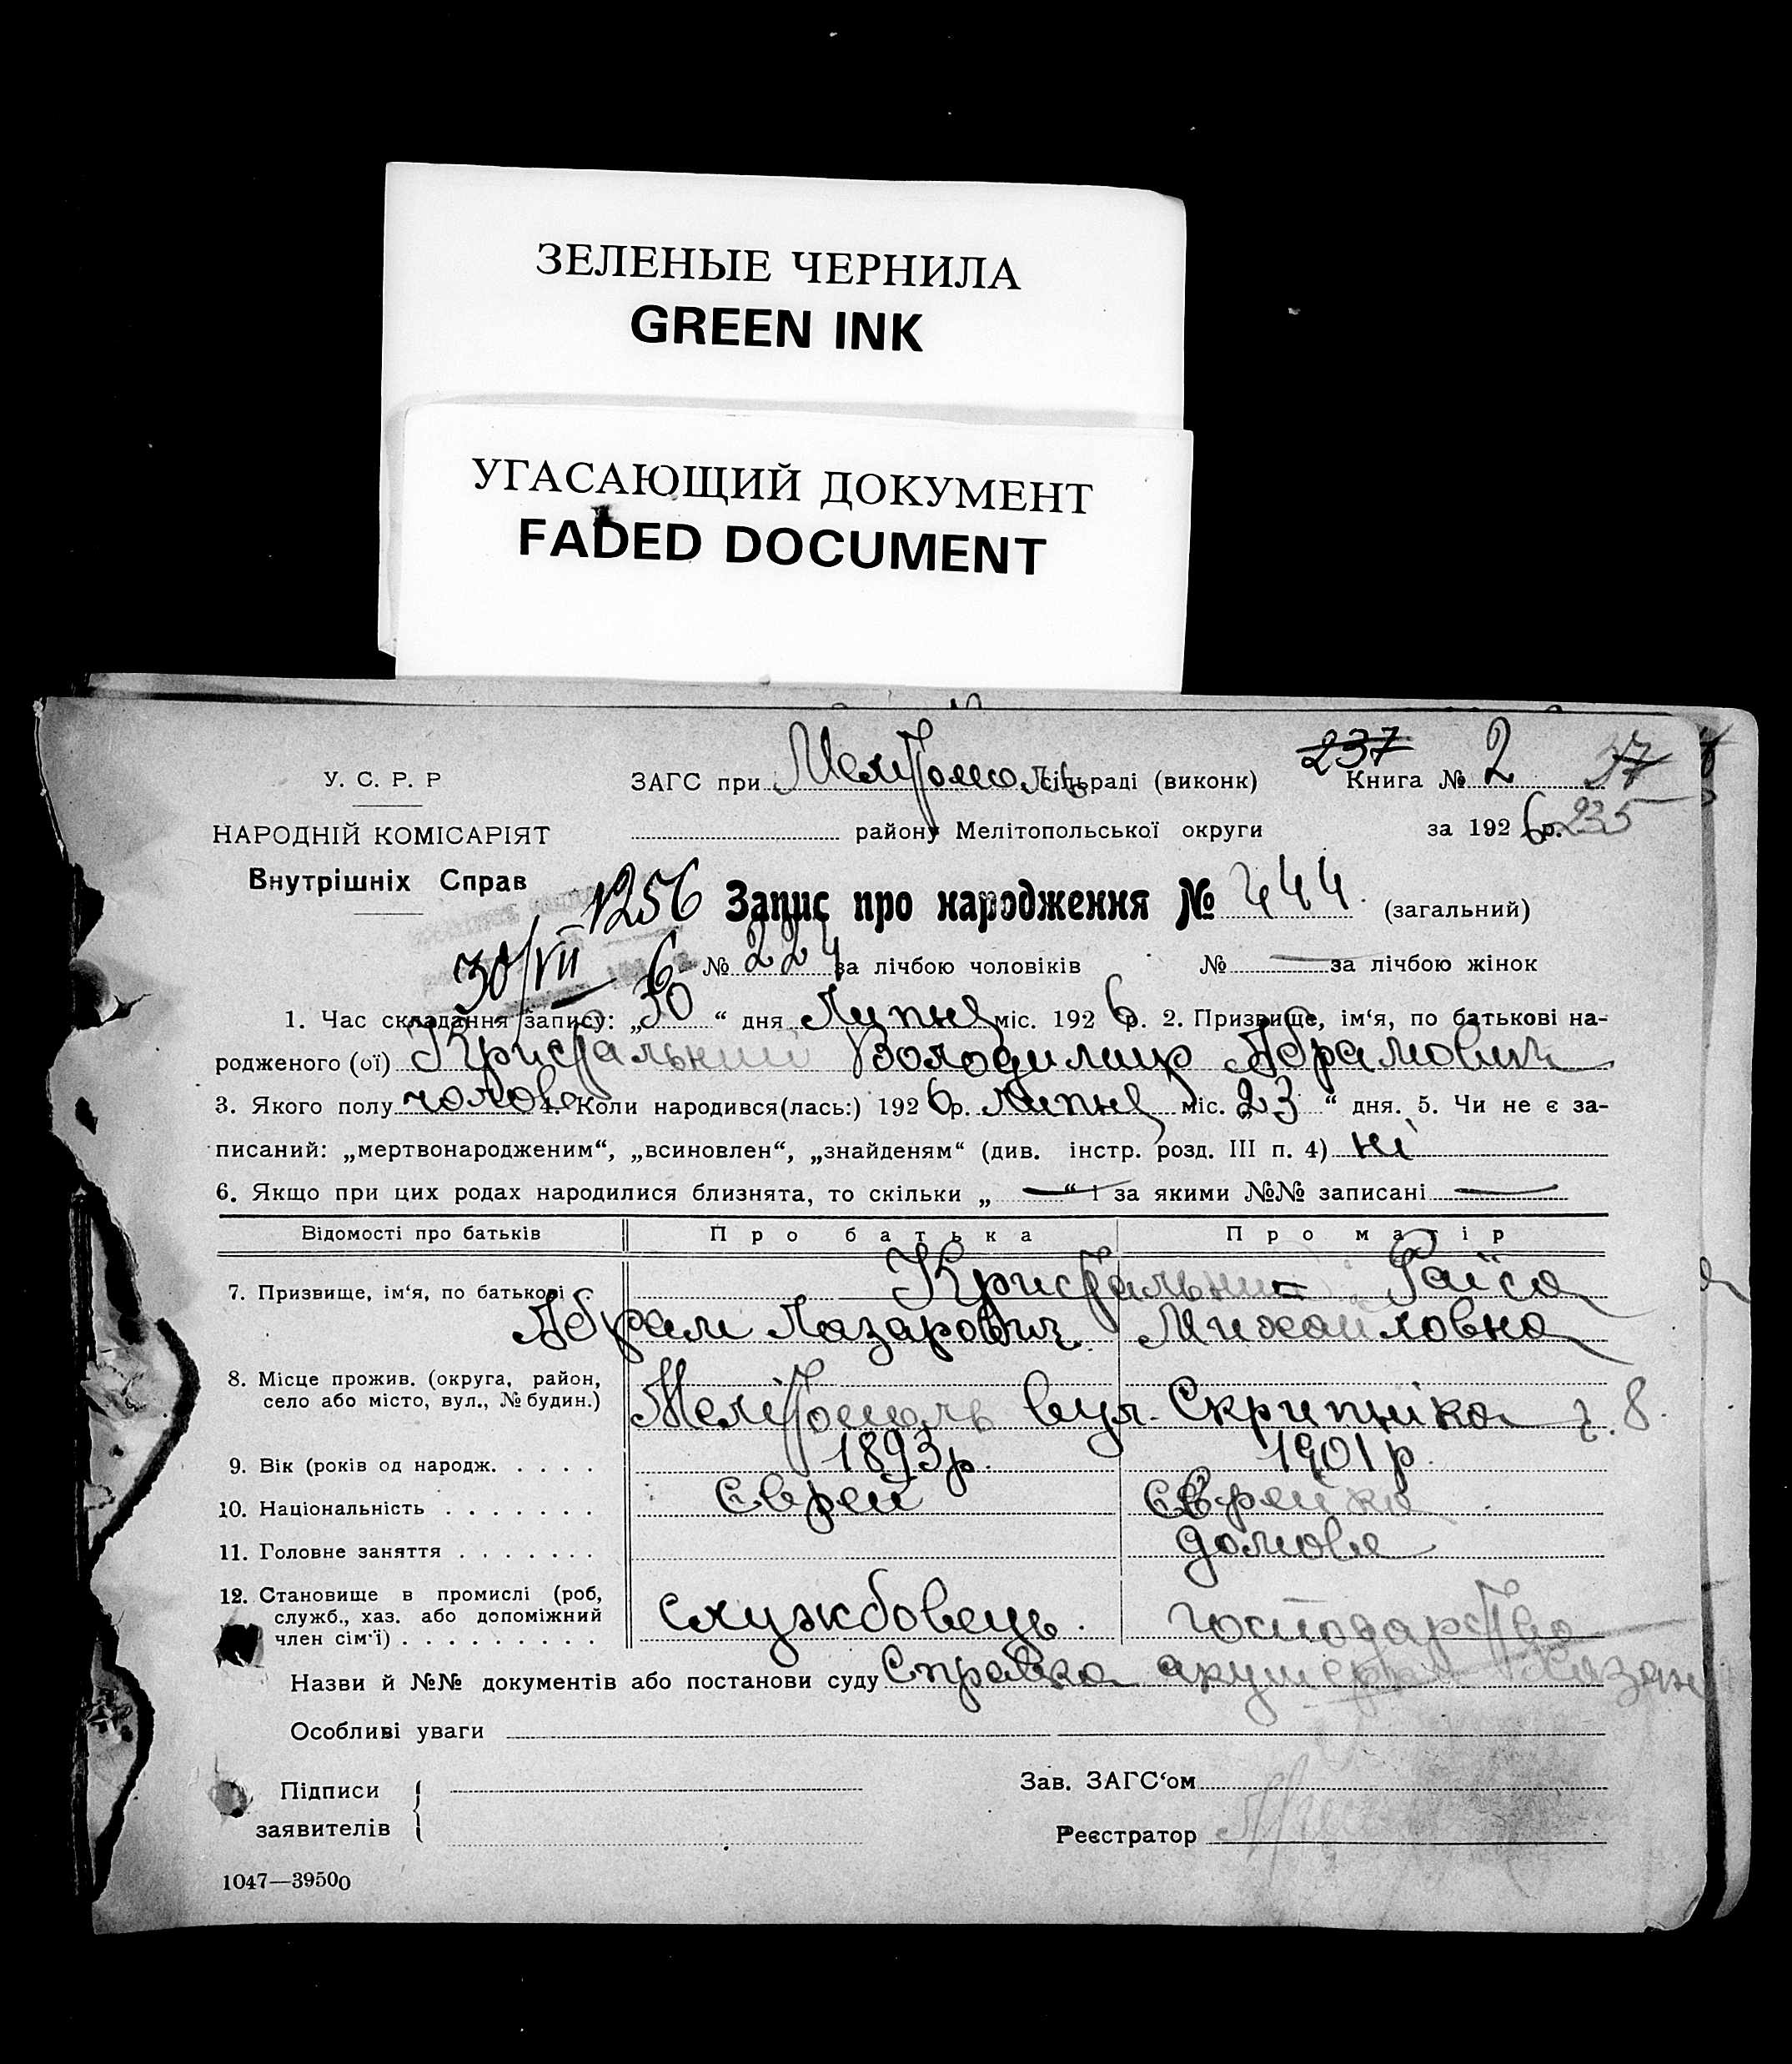 ЗЕЛЕНЫЕ ЧЕРНИЛА
GREEN INK
УГАСАЮЩИЙ ДОКУМЕНТ
FADED DOCUMENT
У. С. Р. Р
НАРОДНІЙ КОМІСАРІЯТ
Внутрішніх Справ
237
ЗАГС при Мелітополь сільраді (виконк) Книга № 2 37
району Мелітопольської округи за 1926 р. 235
1256 Запис про народження № 444 (загальний)
30/VII 6 № 224 за лічбою чоловіків № — за лічбою жінок
1. Час складання запису: „30“ дня Липня міс. 1926 р. 2. Призвище, ім‘я, по батькові на-
родженого (ої) Кристальний Володимир Абрамович
3. Якого полу чолов 4. Коли народився(лась:) 1926 р. Липня міс. 23 “ дня. 5. Чи не є за-
писаний: „мертвонародженим“, „всиновлен“, „знайденям“ (див. інстр. розд. III п. 4) ні
6. Якщо при цих родах народилися близнята, то скільки „ — “ і за якими №№ записані —
Відомості про батьків Про батька Про матір
7. Призвище, ім‘я, по батькові Кристальни= Раїса
Абрам Лазарович Михайловна
8. Місце прожив. (округа, район,
село або місто, вул., № будин.) Мелітополь вул. Скрипника ч. 8
9. Вік (років од народж. . . . . 1893р. 1901р.
10. Національність . . . . . . . Єврей Єврейка
11. Головне заняття . . . . . . . домове
12. Становище в промислі (роб,
служб., хаз. або допоміжний
член сім‘ї) . . . . . . . . . Службовець. господарство
Назви й №№ документів або постанови суду Справка акушерки Хазан
Особливі уваги
Підписи
заявителів
Зав. ЗАГС‘ом
Реєстратор
1047—39500